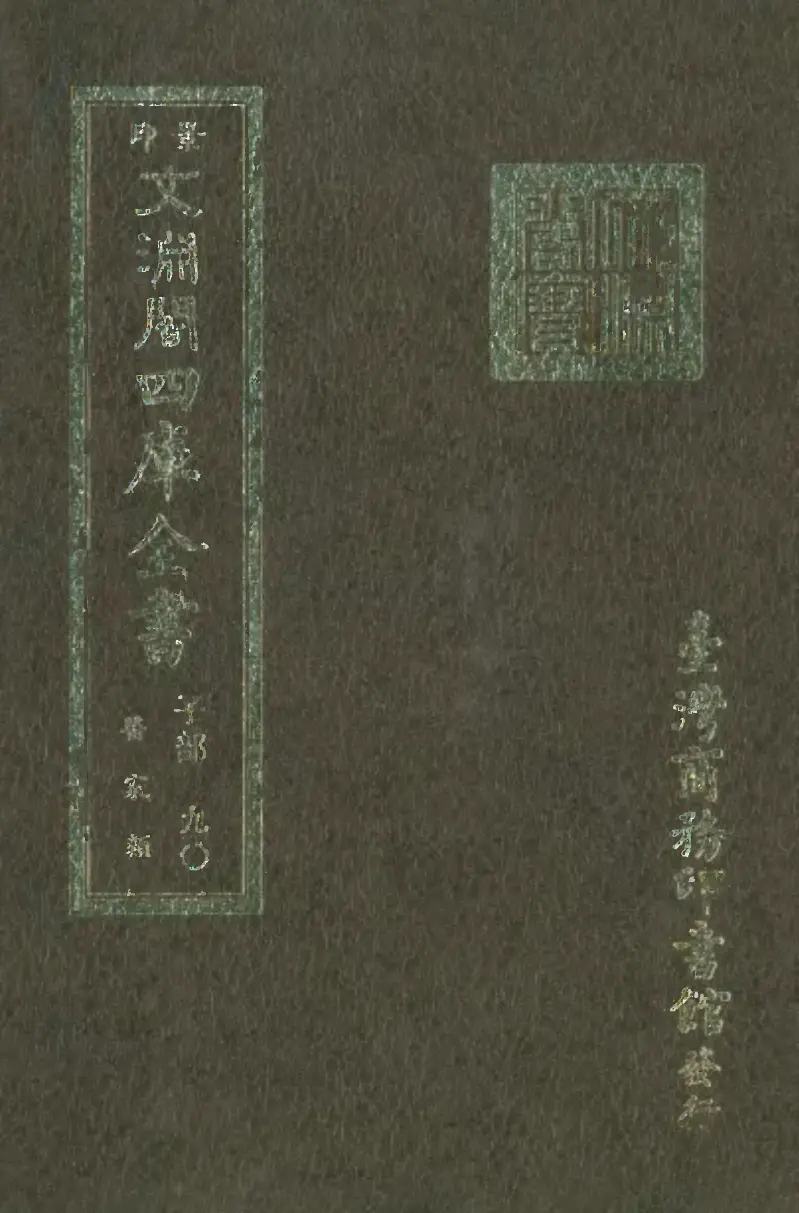 景印
文淵閣四庫全書
子部 九〇
醫家類
文淵閣寶
臺灣商務印書館發行